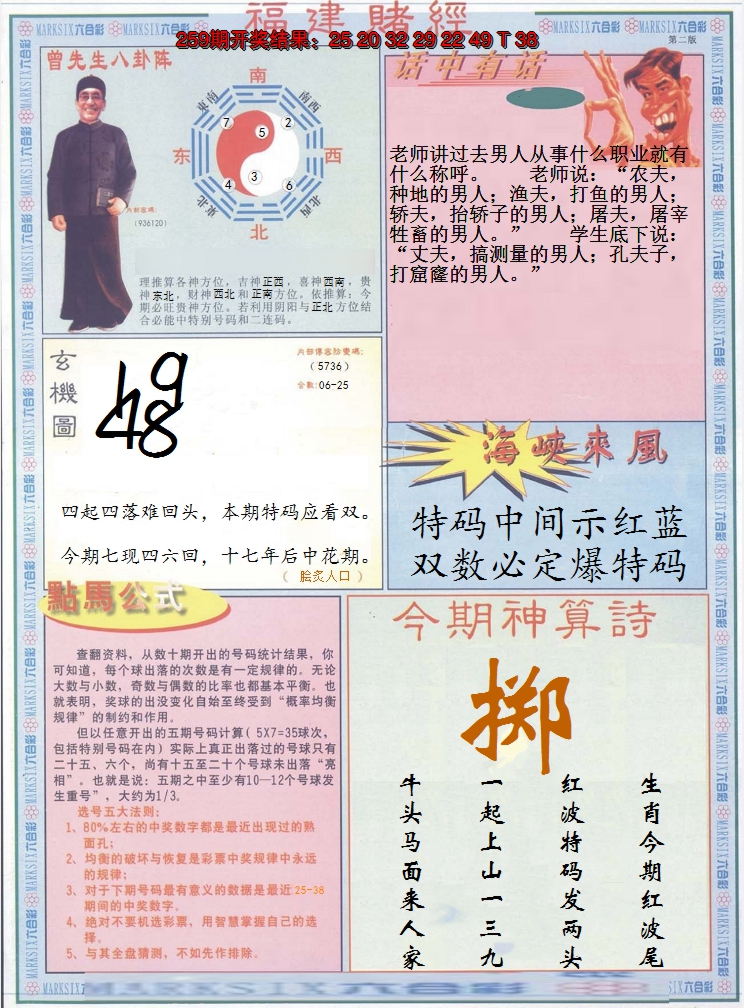 福建賭經
259期开奖结果：25 20 32 29 22 49 T 38
MARKSIX六合彩 MARKSIX六合彩 MARKSIX六合彩
第二版
曾先生八卦阵
南
東南
西南
7
2
5
东
西
3
4
6
東北
西北
北
内部密碼:
(936120)
理推算各神方位，吉神正西，喜神西南，贵
神东北，财神西北和正南方位。依推算：今
期必旺贵神方位。若利用阴阳与正北方位结
合必能中特别号码和二连码。
话中有话
老师讲过去男人从事什么职业就有
什么称呼。 老师说：“农夫，
种地的男人；渔夫，打鱼的男人；
轿夫，抬轿子的男人；屠夫，屠宰
牲畜的男人。” 学生底下说：
“丈夫，搞测量的男人；孔夫子，
打窟窿的男人。”
玄機圖
19
48
(5736)
合数:06-25
四起四落难回头，本期特码应看双。
今期七现四六回，十七年后中花期。
（ 脍炙人口 ）
海峽來風
特码中间示红蓝
双数必定爆特码
點馬公式
查翻资料，从数十期开出的号码统计结果，你
可知道，每个球出落的次数是有一定规律的。无论
大数与小数，奇数与偶数的比率也都基本平衡。也
就表明，奖球的出没变化自始至终受到“概率均衡
规律”的制约和作用。
但以任意开出的五期号码计算( 5X7=35球次，
包括特别号码在内)实际上真正出落过的号球只有
二十五、六个，尚有十五至二十个号球未出落“亮
相”。也就是说：五期之中至少有10—12个号球发
生重号”，大约为1/3。
选号五大法则：
1、80%左右的中奖数字都是最近出现过的熟
面孔；
2、均衡的破坏与恢复是彩票中奖规律中永远
的规律；
3、对于下期号码最有意义的数据是最近25-38
期间的中奖数字。
4、绝对不要机选彩票，用智慧掌握自己的选
择。
5、与其全盘猜测，不如先作排除。
今期神算詩
掷
生肖今期红波尾
红波特码发两头
一起上山一三九
牛头马面来人家
MARKSIX六合彩